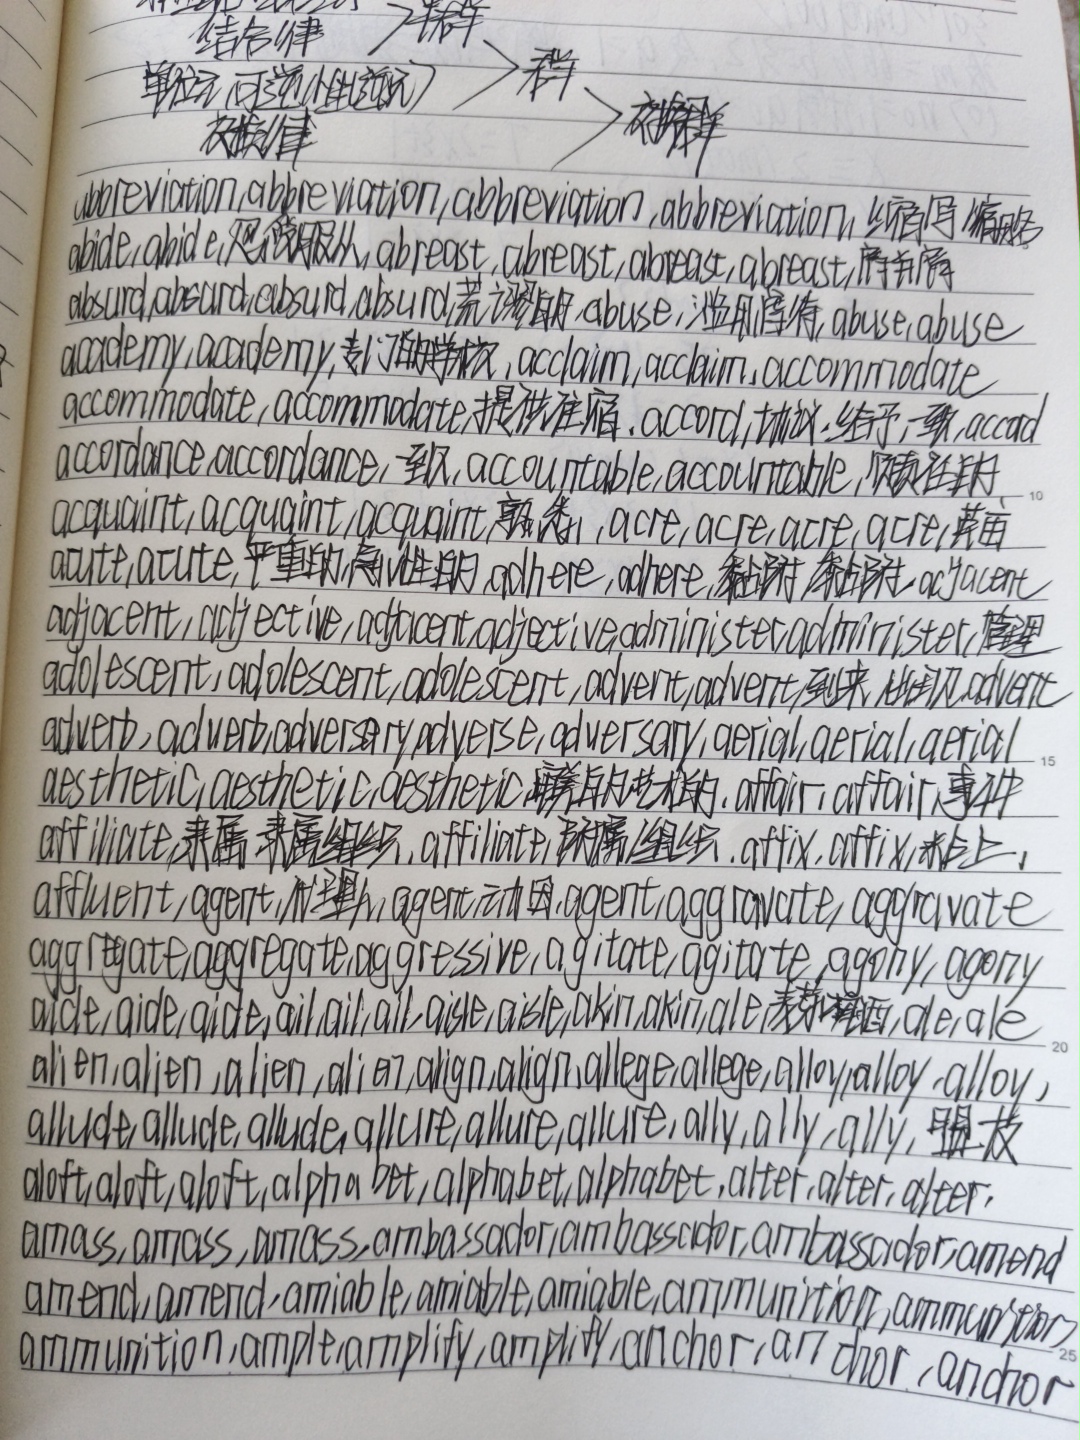 结合律 半群
单位元 可逆(逆元) 群
交换律 交换群
abbreviation, abbreviation, abbreviation, abbreviation, 缩写 缩略
abide, abide, 忍受 服从, abreast, abreast, abreast, abreast, 肩并肩
absurd, absurd, absurd, absurd, 荒谬的, abuse, 滥用 虐待, abuse, abuse
academy, academy, 专门的学校, acclaim, acclaim, accommodate
accommodate, accommodate, 提供住宿. accord, 协议. 给予, 一致, accord
accordance, accordance, 一致, accountable, accountable, 负责任的
acquaint, acquaint, acquaint, 熟悉, acre, acre, acre, acre, 英亩
acute, acute, 严重的, 急性的, adhere, adhere, 黏附 黏附, adjacent
adjacent, adjective, adjacent, adjective, administer, administer, 管理
adolescent, adolescent, adolescent, advent, advent, 到来 出现, advent
adverb, adverb, adversary, adverse, adversary, aerial, aerial, aerial
aesthetic, aesthetic, aesthetic 审美的 艺术的. affair, affair, 事件
affiliate, 隶属 隶属组织. affiliate, 附属组织. affix, affix, 粘上,
affluent, agent, 代理人, agent, 动因, agent, aggravate, aggravate
aggregate, aggregate, aggressive, agitate, agitate, agony, agony
aide, aide, aide, ail, ail, ail, aisle, aisle, akin, akin, ale, 麦芽啤酒, ale, ale
alien, alien, alien, alien, align, align, allege, allege, alloy, alloy, alloy,
allude, allude, allude, allure, allure, allure, ally, ally, ally, 盟友
aloft, aloft, aloft, alphabet, alphabet, alphabet, alter, alter, alter,
amass, amass, amass, ambassador, ambassador, ambassador, amend
amend, amend, amiable, amiable, amiable, ammunition, ammunition
ammunition, ample, amplify, amplify, anchor, anchor, anchor